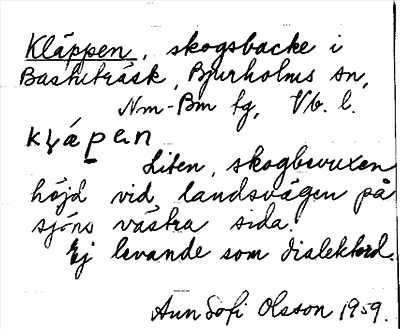 Kläppen, skogsbacke i
Bastuträsk, Bjurholms sn,
Nm-Bm tg, Vb. l.
kl̨äpen
Liten, skogbevuxen
höjd vid landsvägen på
sjöns västra sida.
Ej levande som dialektord.
Ann Sofi Olsson 1959.